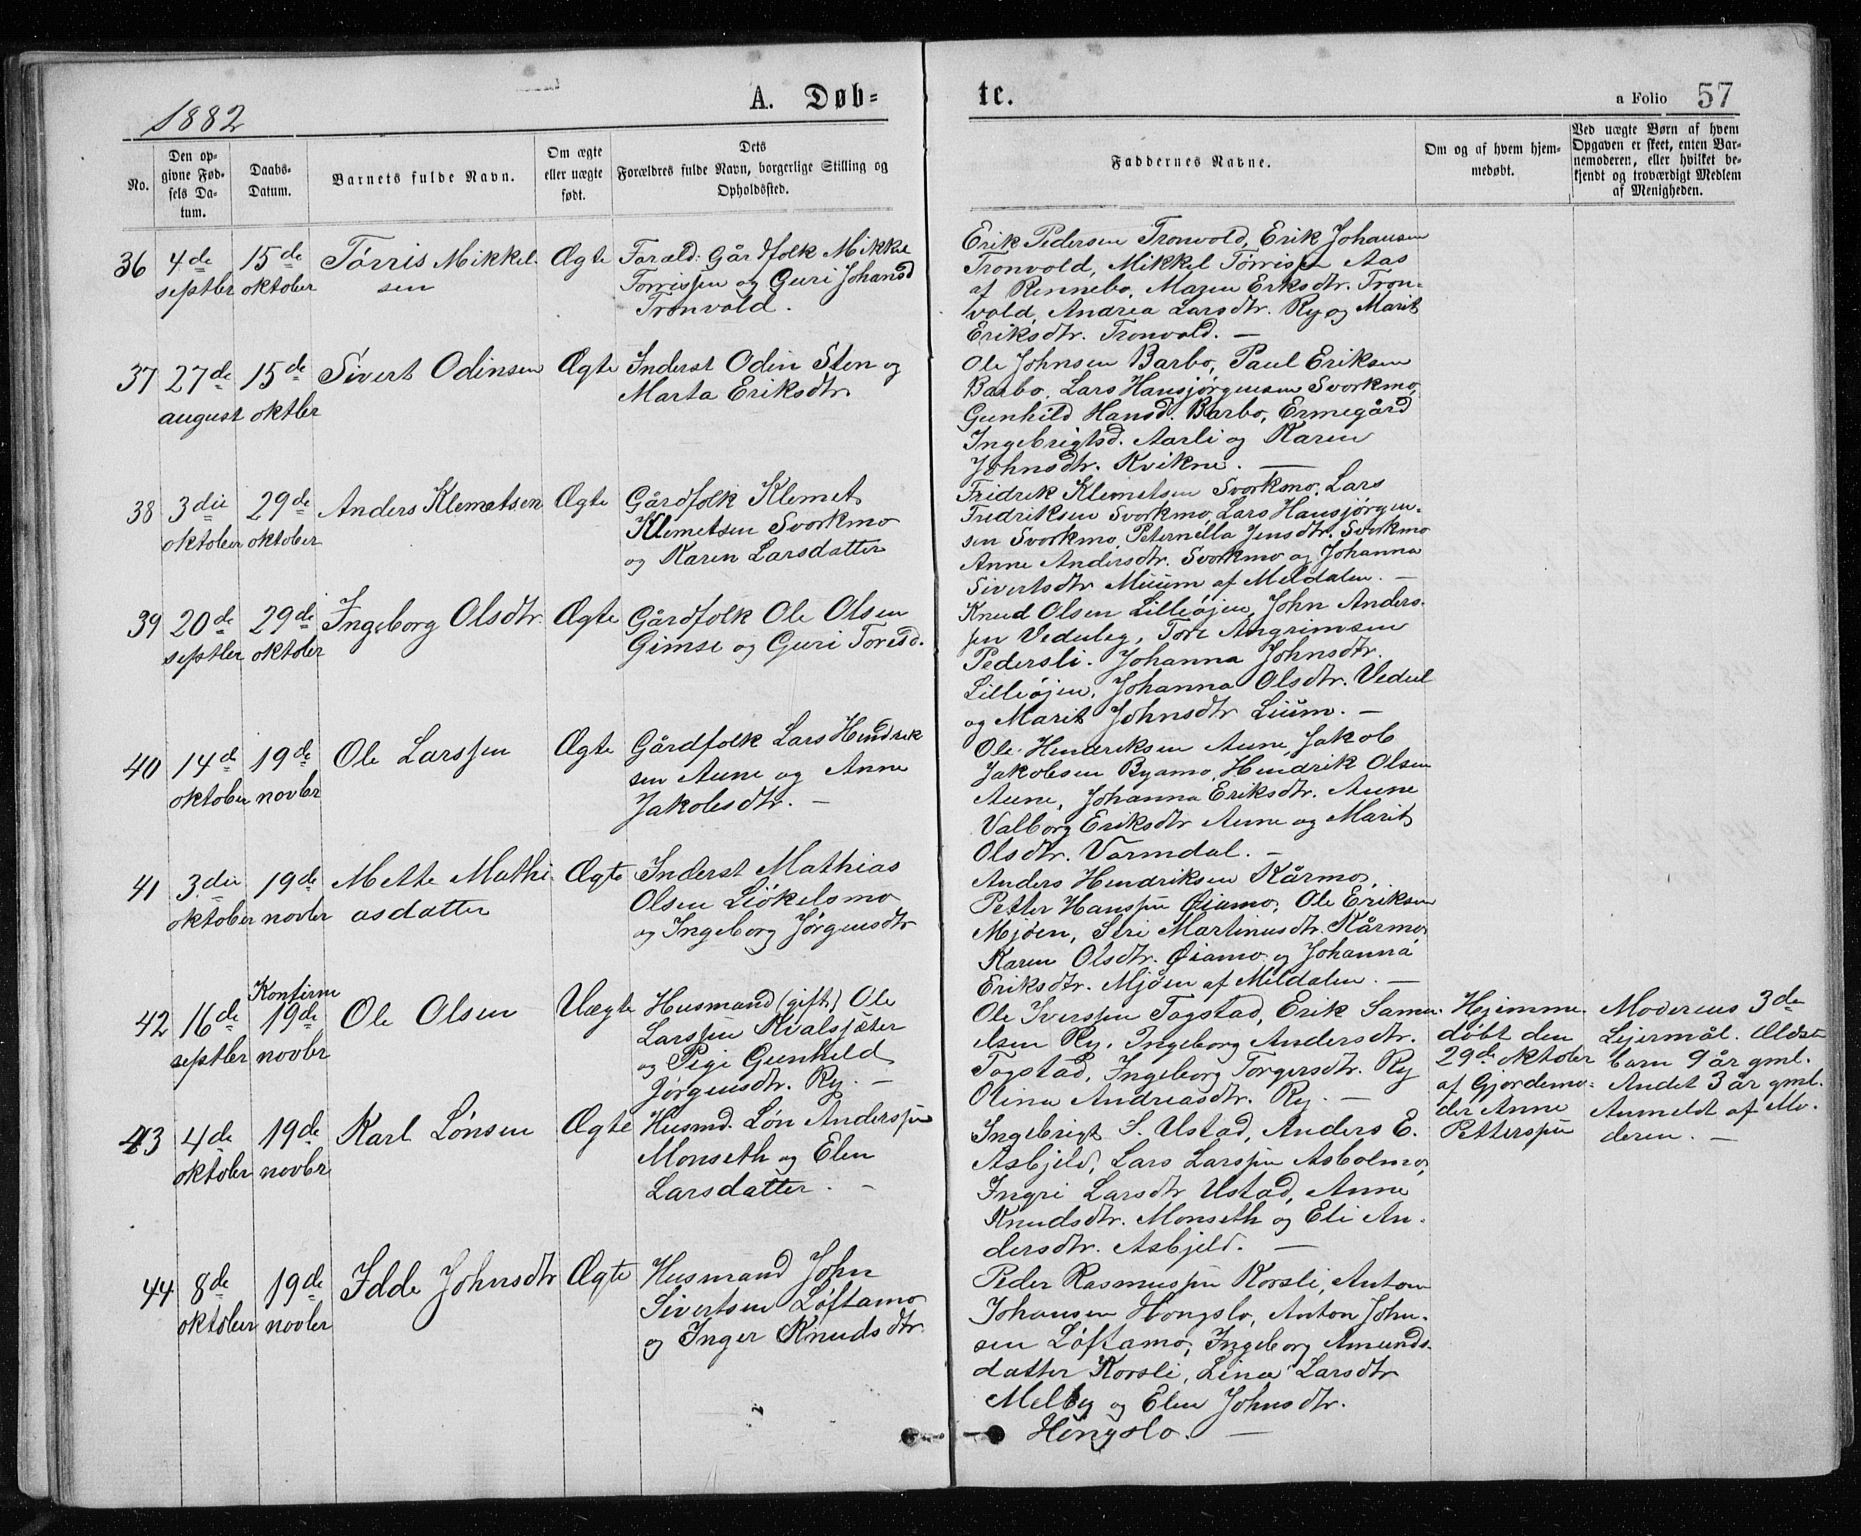 1882
A. Døb-
te.
a Folio 57
No.
Den op-
givne Fød-
sels Da-
tum.
Daabs-
Datum.
Barnets fulde Navn.
Om ægte
eller uægte
født.
Dets
Forældres fulde Navn, borgerlige Stilling og
Opholdssted.
Faddernes Navne.
Om og af hvem hjem-
medøbt.
Ved uægte Børn af hvem
Opgaven er skeet, enten Bar-
nemoderen, eller hvilket be-
kjendt og troværdigt Medlem
af Menigheden.
36
4de
septber
15de
oktober
Tørris Mikkel-
sen
Ægte
Foræld: Gårdfolk Mikkel
Tørrissen og Guri Johansd
Tronvold.
Erik Pedersen Tronvold, Erik Johansen
Tronvold, Mikkel Tørrissen Aas
af Rennebo, Maren Eriksdtr. Tron-
vold, Andrea Larsdtr. Ry og Marit
Eriksdtr. Tronvold. —
37
27de
august
15de
oktber
Sivert Odinsen
Ægte
Inderst Odin Sten og
Marta Eriksdtr
Ole Johnsen Barbo, Paul Eriksen
Barbo, Lars Hansjørgensen Svorkmo,
Gunhild Hansd. Barbo, Ermegård
Ingebrigtsd. Aarli og Karen
Johnsdtr. Kvikne. —
38
3die
oktober
29de
oktober
Anders Klemetsen
Ægte
Gårdfolk Klemet
Klemetsen Svorkmo
og Karen Larsdatter
Fridrik Klemetsen Svorkmo, Lars
Fredriksen Svorkmo, Lars Hansjørgen-
sen Svorkmo, Peternella Jensdtr. Svorkmo
Anne Andersdtr. Svorkmo og Johanna
Sivertsdtr Muum af Meldalen. —
39
20de
septber
29de
oktober
Ingeborg Olsdtr
Ægte
Gårdfolk Ole Olsen
Gimse og Guri Toresd.
Knud Olsen Lilleøjen, John Anders-
sen Veduleg, Tore Angrimsen
Pedersli. Johanna Johnsdtr.
Lilleøjen, Johanna Olsdtr. Vedul
og Marit Johnsdtr Lium. —
40
14de
oktober
19de
novbr
Ole Larssen
Ægte
Gårdfolk Lars Hendrik
sen Aune og Anne
Jakobsdtr. —
Ole Hendriksen Aune, Jakob
Jakobsen Byamo, Hendrik Olsen
Aune, Johanna Eriksdtr. Aune
Valborg Eriksdtr Aune og Marit
Olsdtr. Varmdal. —
41
3die
oktober
19de
novber
Mette Mathi-
asdatter
Ægte
Inderst Mathias
Olsen Liøkelsmo
og Ingeborg Jørgensdtr
Anders Hendriksen Kårmo,
Petter Hanssen Øiamo, Ole Eriksen
Mjøen, Seri Martinusdtr. Kårmo,
Karen Olsdtr. Øiamo og Johanna
Eriksdtr. Mjøen af Meldalen. —
42
16de
septber
Konfirm
19de
novbr
Ole Olsen
Uægte
Husmand (gift) Ole
Larssen Kvalsjæter
og Pige Gunhild
Jørgensdtr. Ry. —
Ole Iverssen Togstad, Erik Samu-
elsen Ry, Ingeborg Andersdtr.
Togstad, Ingeborg Torgersdtr. Ry
Olina Andreasdtr. Ry. —
Hjemme-
døbt den
29de oktober
af Gjordemo-
der Anne
Petterssen
Moderens 3de
Lejermål. Ældste
barn 9 år gml.
Andet 3 år gml.
Anmeldt af Mo-
deren. —
43
4de
oktober
19de
novbr
Karl Lønsen
Ægte
Husmd. Løn Anderssen
Monseth og Elen
Larsdatter. —
Ingebrigt S. Ustad, Anders E.
Asbjeld, Lars Larssen Asbolmo,
Ingri Larsdtr Ustad, Anne
Knudsdtr. Monseth og Eli An-
dersdtr. Asbjeld. —
44
8de
oktober
19de
novber
Idde Johnsdtr
Ægte
Husmand John
Sivertsen Løftamo
og Inger Knudsdtr.
Peder Rasmussen Korsli, Anton
Johansen Hongslo, Anton John-
sen Løftamo, Ingeborg Amunds-
datter Korsli, Lina Larsdtr
Melby og Elen Johnsdtr.
Hongslo. —